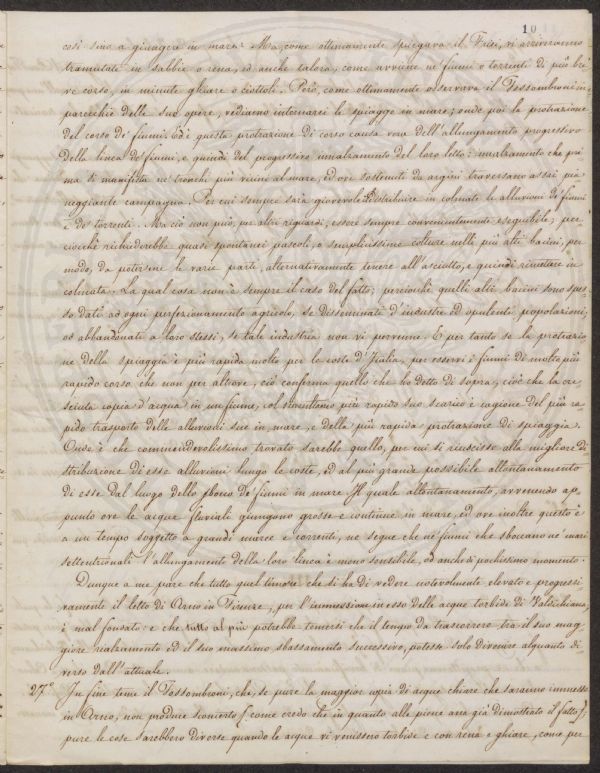 10
così sino a giungere in mare. Ma, come ottimamente spiegava il Frisi, vi arriveranno
tramutate in sabbia o rena, ed anche talora, come avviene ne' fiumi o torrenti di più bre
ve corso, in minute ghiare o ciottoli. Però, come ottimamente osservava il Fossombroni in
parecchie delle sue opere, vediamo internarsi le spiagge in mare; onde poi la protrazione
del corso de' fiumi. Ed è questa protrazione di corso causa vera dell'allungamento progressivo
della linea de' fiumi, e quindi del progressivo innalzamento del loro letto: innalzamento che pri
ma si manifesta ne' tronchi più vicini al mare, ed ove sostenuti da argini traversano assai pia
neggiante campagna. Per cui sempre sarà giovevole distribuire in colmate le alluvioni de' fiumi
e de' torrenti. Ma ciò non può, per altri riguardi, essere sempre convenientemente eseguibile; per
ciocchè richiederebbe quasi spontanei pascoli, o semplicissime colture nelle più alti bacini, per
modo, da potersene le varie parti, alternativamente tenere all'asciutto, e quindi rimettere in
colmata. La qual cosa non è sempre il caso del fatto; perciocchè quelli alti bacini sono spes
so dati ad ogni perfezionamento agricolo, se disseminati d'industri ed opulenti popolazioni,
od abbandonati a loro stessi, se tale industria non vi pervenne. E per tanto se la protrazio
ne della spiaggia è più rapida molto per le coste d'Italia, per esservi i fiumi di molto più
rapido corso che non per altrove, ciò conferma quello che ho detto di sopra, cioè che la cre
sciuta copia d'acqua in un fiume, col simultaneo più rapido suo scarico è cagione del più ra
pido trasporto delle alluvioni sue in mare, e della più rapida protrazione di spiaggia.
Onde è che commendevolissimo trovato sarebbe quello, per cui si riuscisse alla migliore di
stribuzione di esse alluvioni lungo le coste, ed al più grande possibile allontanamento
di esse dal luogo dello sbocco de' fiumi in mare. Il quale allontanamento, avvenendo ap
punto ove le acque fluviali giungono grosse e continue in mare, ed ove inoltre questo è
a un tempo soggetto a grandi maree e correnti, ne segue che ne' fiumi che sboccano ne' mari
settentrionali l'allungamento della loro linea è meno sensibile, od anche di pochissimo momento.
Dunque a me pare che tutto quel timore che si ha di vedere notevolmente elevato e progressi
vamente il letto di Arno in Firenze, per l'immissione in esso delle acque torbide di Valdichiana,
è mal fondato: e che tutto al più potrebbe temersi che il tempo da trascorrere tra il suo mag
giore rialzamento ed il suo massimo sbassamento successivo, potesse solo divenire alquanto di
verso dall'attuale.
27.° In fine teme il Fossombroni, che, se pure la maggior copia di acque chiare che saranno immesse
in Arno, non produce sconcerto (come credo che in quanto alle piene ana già dimostrato il fatto);
pure le cose sarebbero diverse quando le acque vi venissero torbide e con rena e ghiare, come per